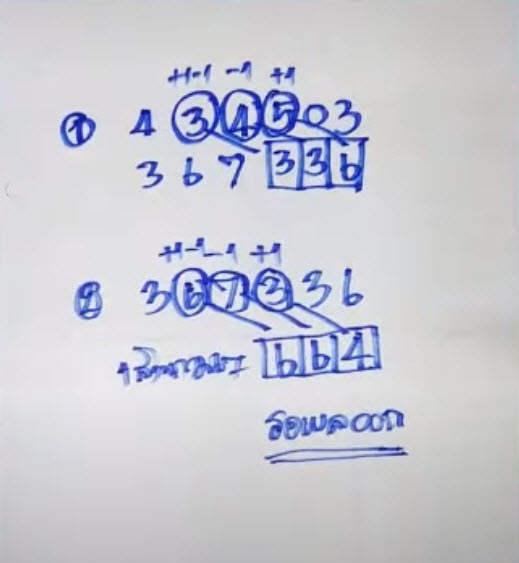 +1-1 -1 +1
① 4 3 4 5 0 3
3 6 7 3 3 6
+1-1 -1 +1
② 3 6 7 3 3 6
6 6 4
รอผลออก